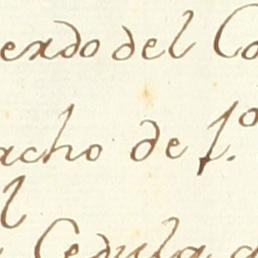 erdo del Co
acho de 1.º
l
Cedula